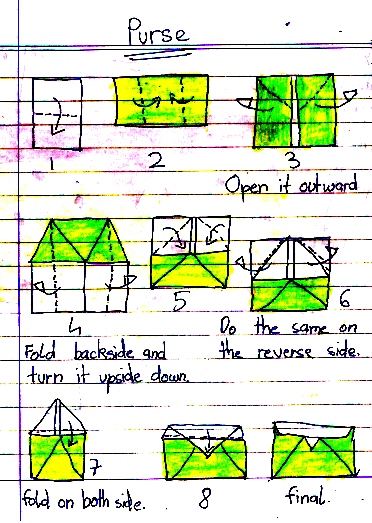 Purse
1
2
3
Open it outward
4
5
6
Fold backside and
turn it upside down.
Do the same on
the reverse side.
7
fold on both side.
8
final.